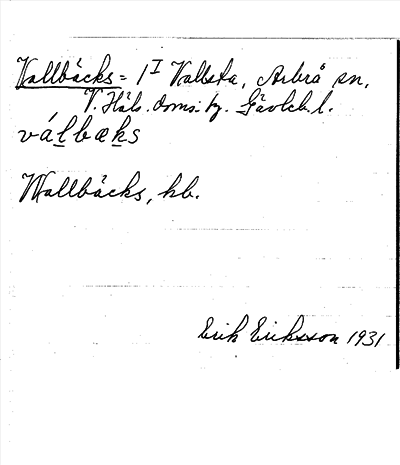 Vallbäcks = 1^I Vallsta, Arbrå sn,
V. Häls. doms. tg. Gävleb. l.
válbæks
Wallbäcks, kb.
Erik Eriksson 1931